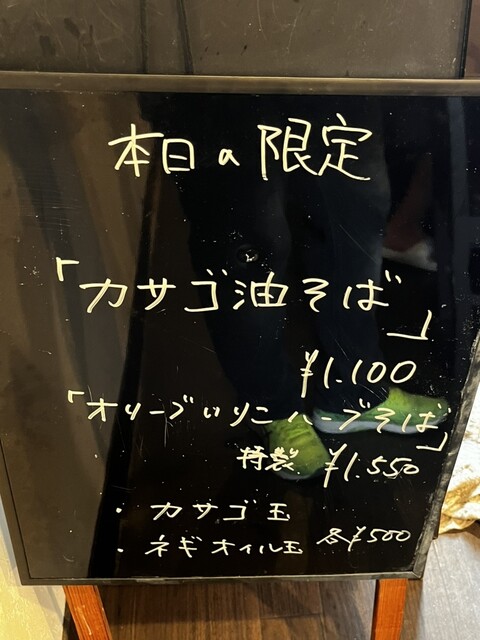 本日の限定
「カサゴ油そば」
¥1.100
「オリーブいりこハーブそば」
特製 ¥1.550
・カサゴ玉
・ネギオイル玉 各¥500